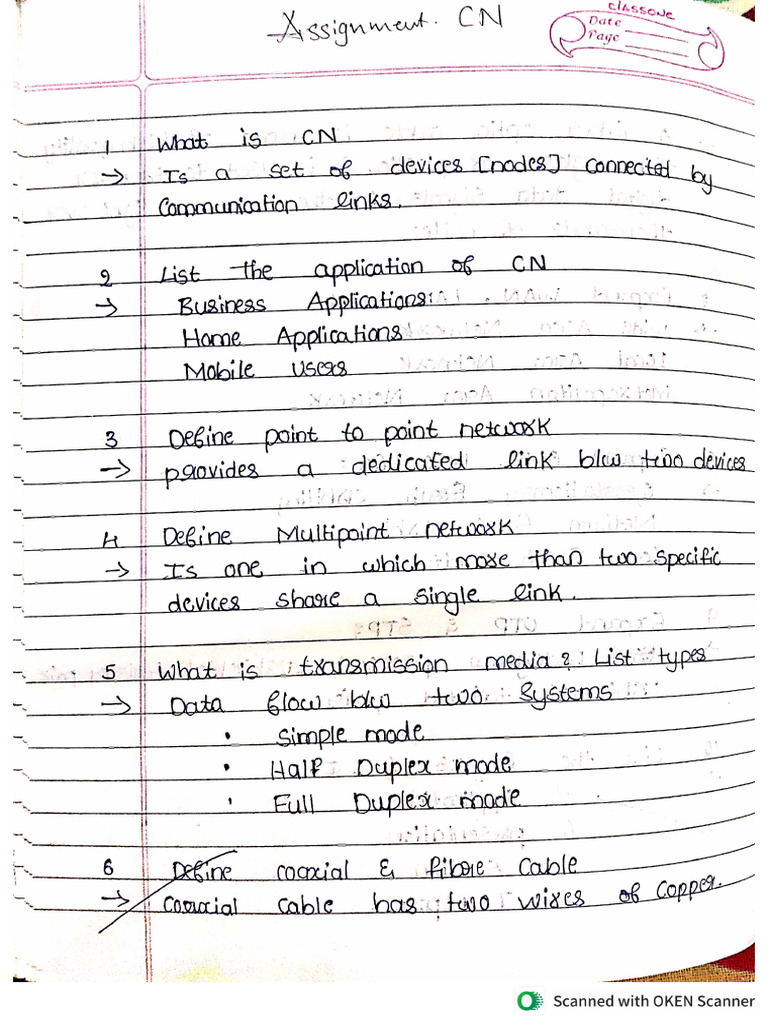 Assignment. CN
CLASSONE
Date
Page
1 What is CN
→ Is a set of devices [nodes] connected by
communication links.
2 List the application of CN
→ Business Applications:
Home Applications
Mobile users
3 Define point to point network
→ provides a dedicated link b/w two devices
4 Define Multipoint network
→ Is one in which more than two specific
devices share a single link.
5 What is transmission media? List types
→ Data flow b/w two systems
• Simple mode
• Half Duplex mode
• Full Duplex mode
6 Define coaxial & fibre cable
→ Coaxial cable has two wires of copper.
Scanned with OKEN Scanner